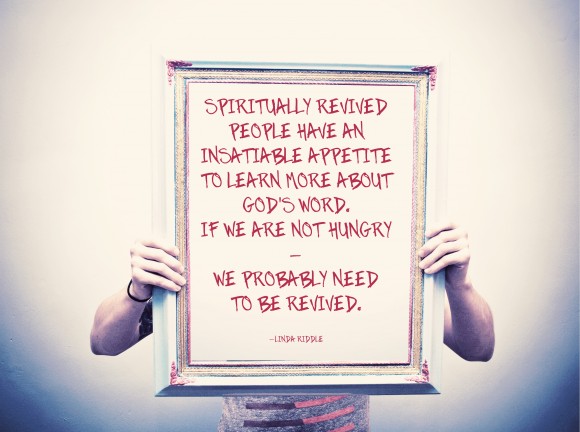 SPIRITUALLY REVIVED
PEOPLE HAVE AN
INSATIABLE APPETITE
TO LEARN MORE ABOUT
GOD'S WORD.
IF WE ARE NOT HUNGRY
–
WE PROBABLY NEED
TO BE REVIVED.
–LINDA RIDDLE